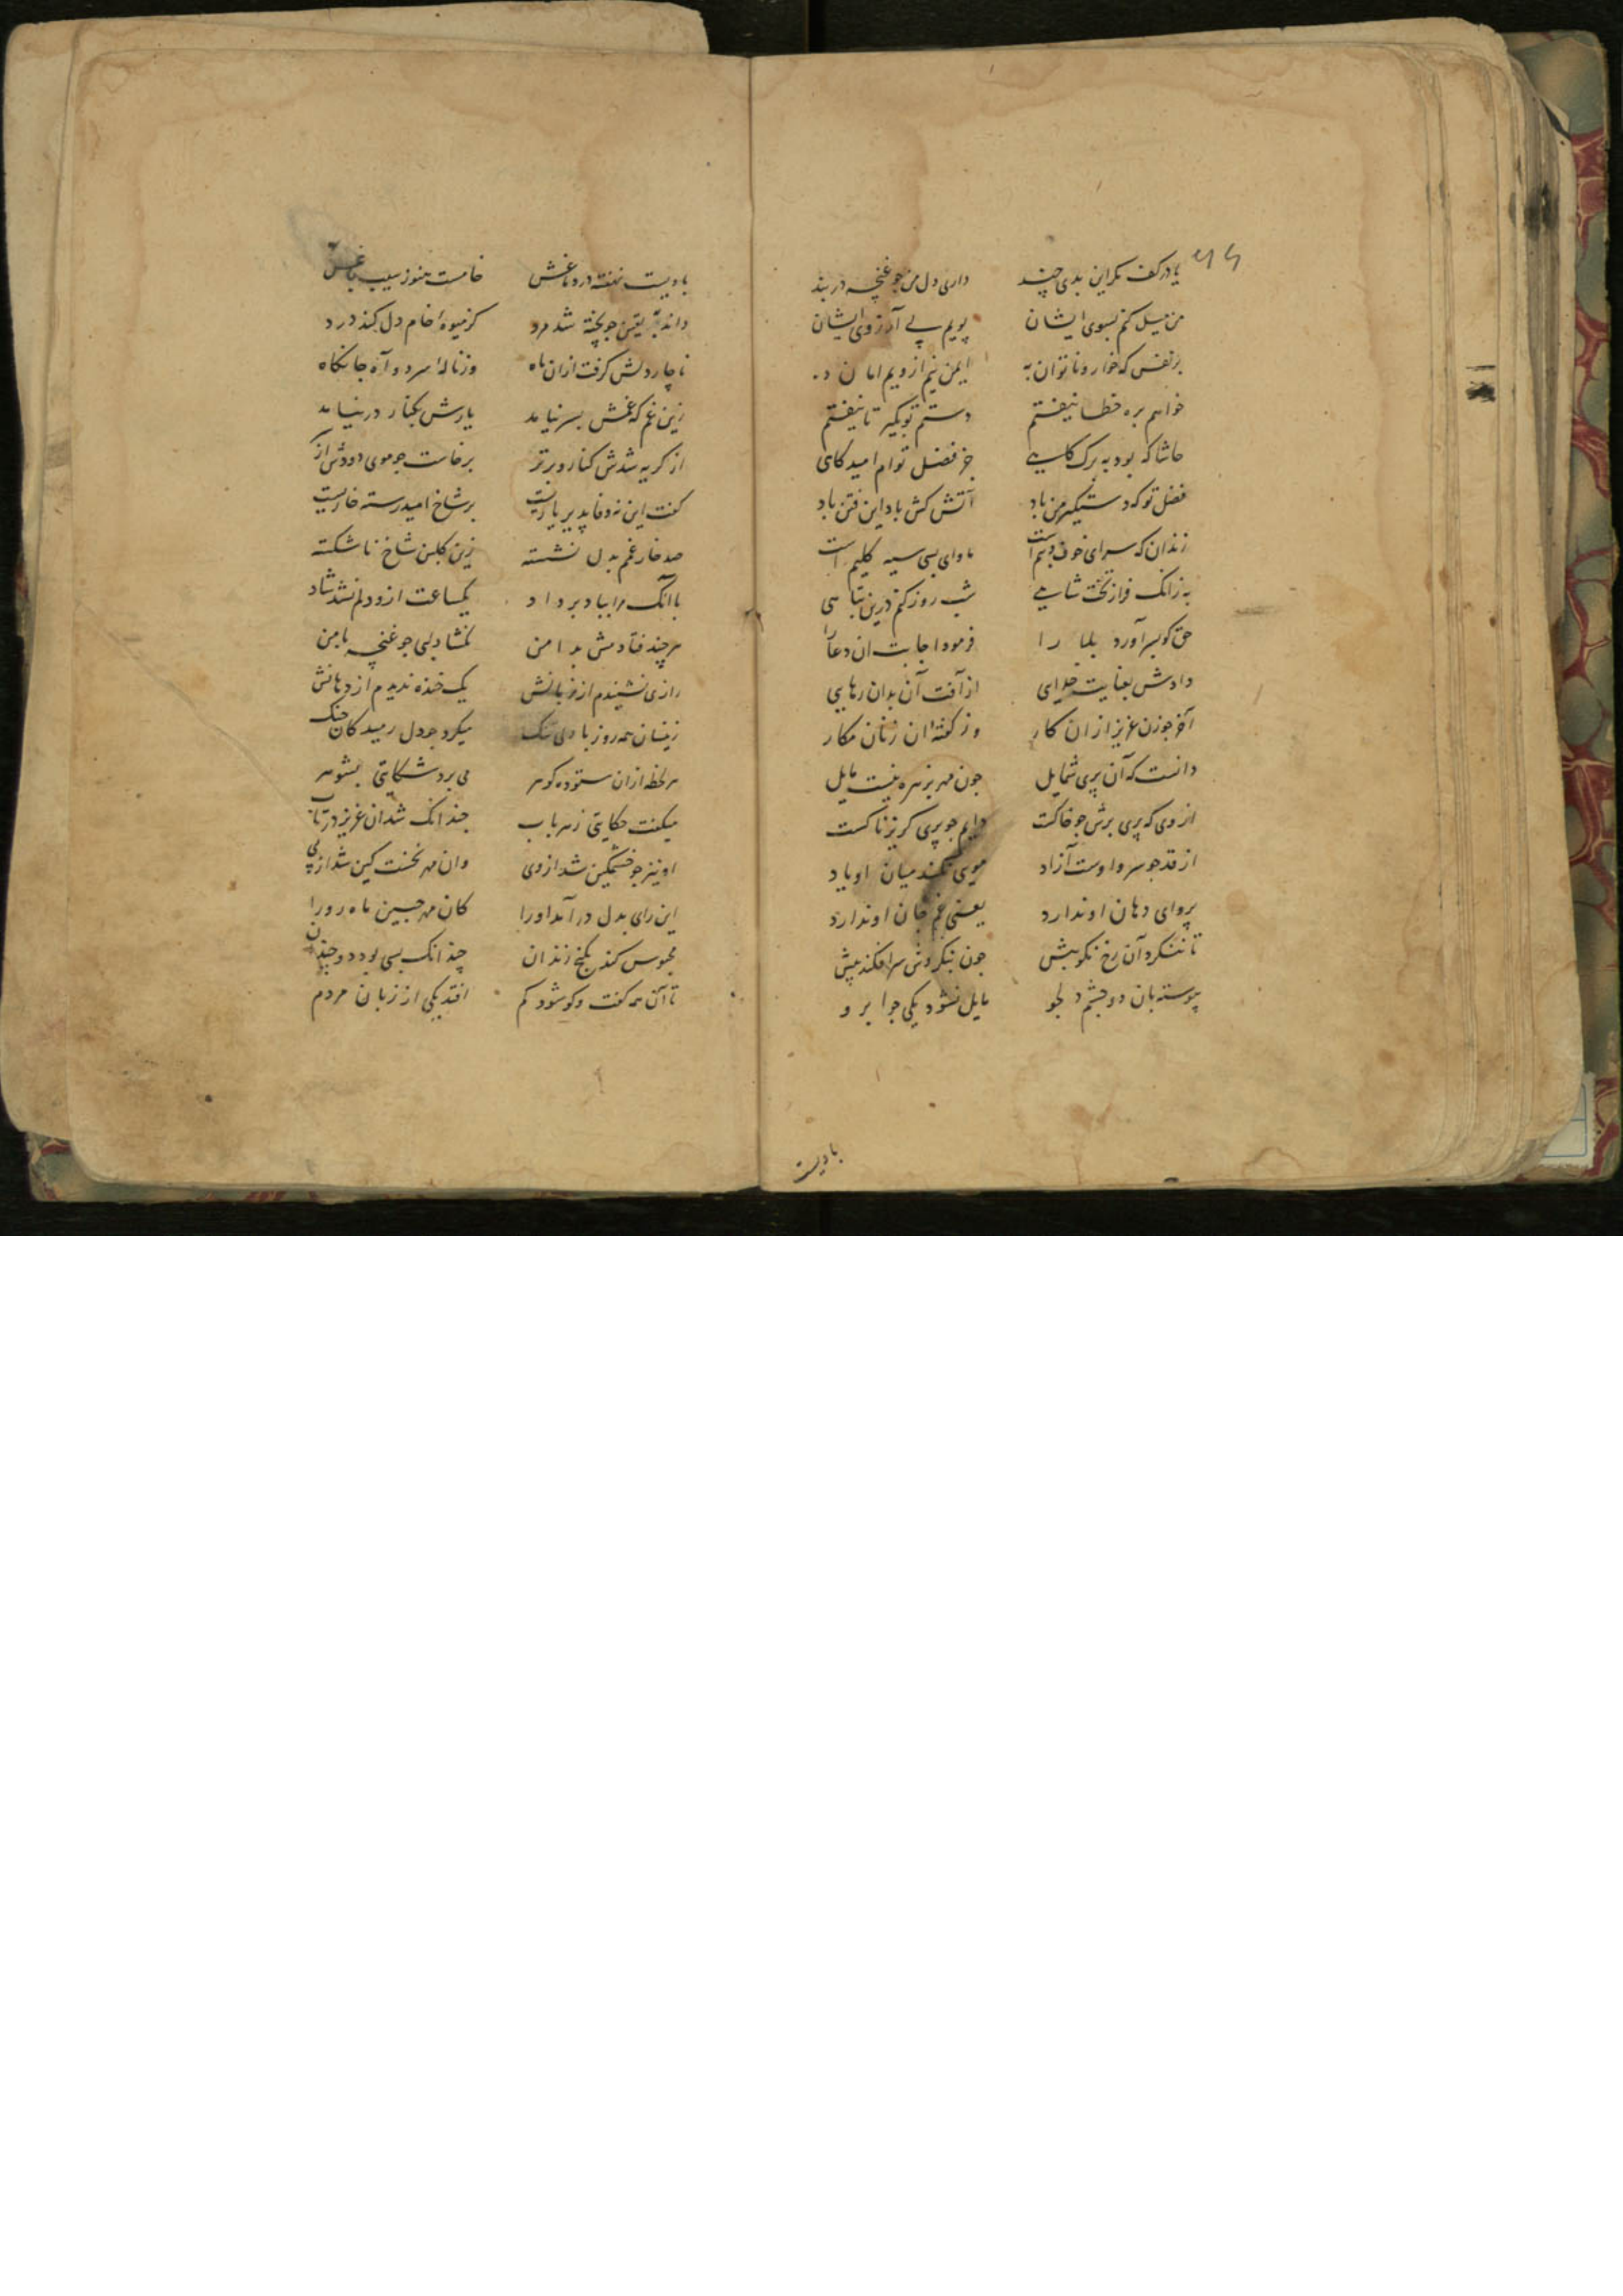 یا در کف مکر این بدی چند داری دل من جو غنچه در بند
من میل کنم بسوی ایشان پویم پی آرزوی ایشان
بر نفس که خوار و ناتوان به ایمن نیم ازویم امان ده
خواهم بره خطا نیفتم دستم تو بکیر تا نیفتم
حاشا که بود به برک کاهی جز فضل توام امیدکاهی
فضل تو که دستکیر من باد آتش کش باد این فتن باد
زندان که سرای خوف و بیم است ماوای بسی سیه کلیم است
به زانک فراز تخت شاهی شب روز کنم درین تباهی
حق کو بسر آورد بلا را فرمود اجابت ان دعا را
دادش بعنایت خدایی از آفت آن بدان رهایی
آخر جو زن عزیز ازان کار وز کفته ان زنان مکار
دانست که آن پری شمایل جون مهر بزهره نیست مایل
از وی که پری برش جو خاکست دایم جو پری کریزناکست
از قد جو سرو اوست آزاد مویی نکند میان او یاد
پروای دهان او ندارد یعنی غم جان او ندارد
تا ننکرد آن رخ نکویش جون بنکردش سر افکند پیش
پیوسته بان دو جشم دلجو مایل نشود یکی جو ابرو
بادیست
بادیست نهفته در دماغش خامست هنوز سیب باغش
داند به یقین جو پخته شد مرد کز میوه خام دل کند درد
ناچار دلش کرفت ازان ماه وز ناله سرد و آه جانکاه
زین غم که غمش بسر نیامد یارش بکنار در نیامد
از کریه شدش کنار و بر تر برخاست جو موی دودش از سر
کفت این نه وفا پذیر یاریست بر شاخ امید رسته خاریست
صد خار غم بدل نشسته زین کلبن شاخ ناشکسته
با آنک مرا بباد بر داد یکساعت ازو دلم نشد شاد
هر چند فتادمش بدامن نکشاد لبی جو غنچه با من
رازی نشنیدم از زبانش یک خنده ندیدم از دهانش
زینسان همه روز با دلی تنک میکرد جو دل رمیدکان جنک
هر لحظه ازان ستوده کوهر می برد شکایتی بشوهر
میکفت حکایتی ز هر باب جندانک شد ان عزیز در تاب
او نیز جو خشمکین شد از وی وان مهر نخست کین شد از پی
این رای بدل در آمد اورا کان مهر جبین ماه رو را
محبوس کند بکنج زندان چندانک بسی بود دو جندان
تا آن همه کفت و کو شود کم افتد یکی از زبان مردم